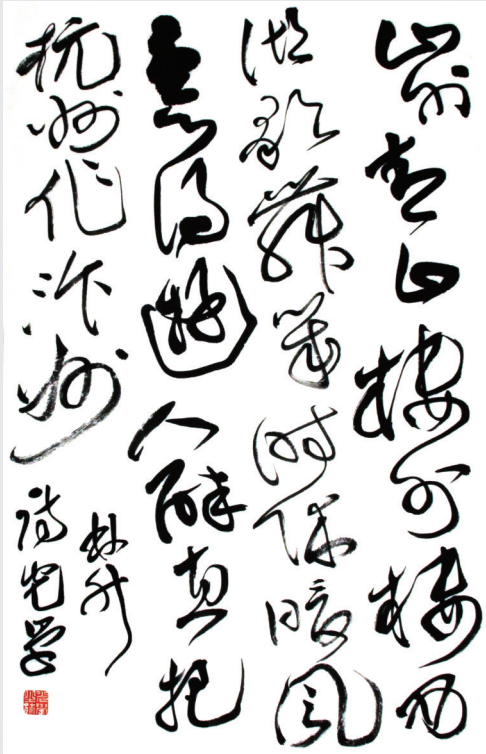 山外青山楼外楼西
湖歌舞幾时休暖风
熏得遊人醉直把
杭州作汴州
林升
诗